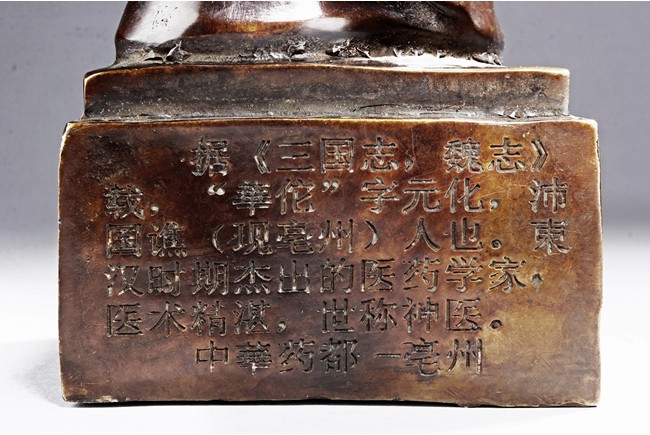 据《三国志，魏志》
载，“華佗”字元化，沛
国谯（现亳州）人也。東
汉时期杰出的医药学家，
医术精湛，世称神医。
中華药都－亳州